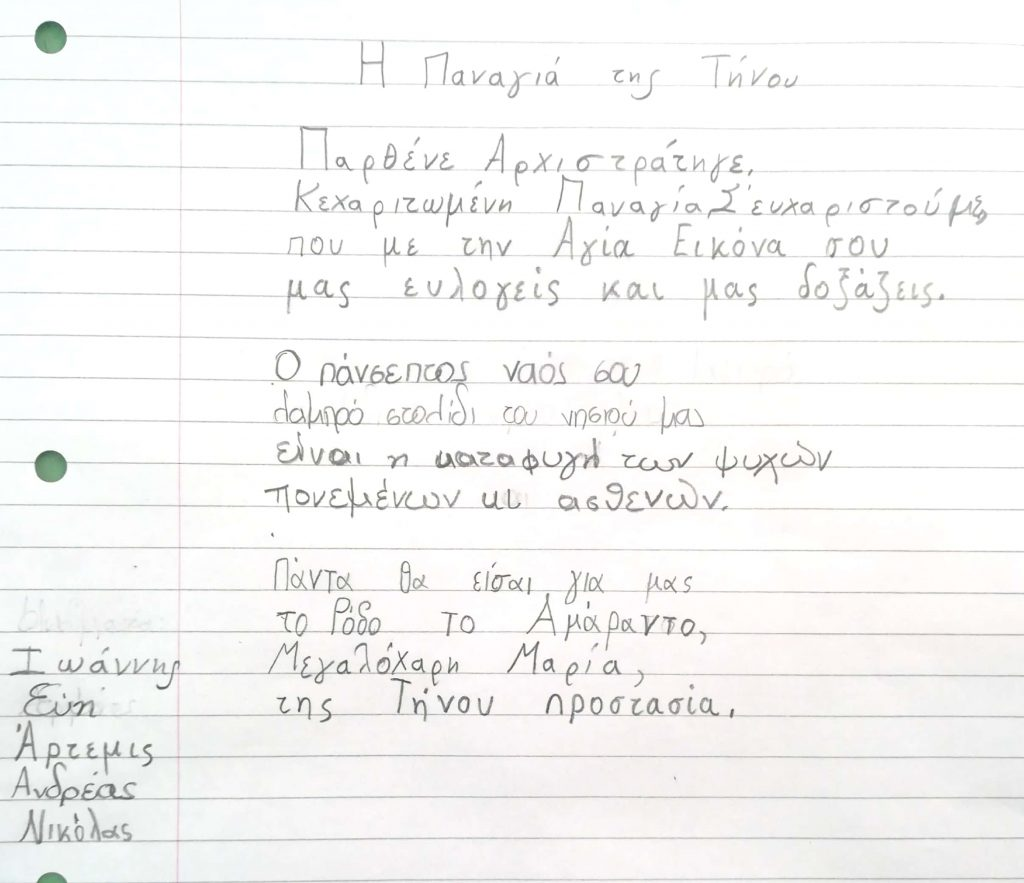 Η Παναγιά της Τήνου
Παρθένε Αρχιστράτηγε,
Κεχαριτωμένη Παναγία, Σ' ευχαριστούμε,
που με την Αγία Εικόνα σου
μας ευλογείς και μας δοξάζεις.
Ο πάνσεπτος ναός σου
λαμπρό στολίδι του νησιού μας
είναι η καταφυγή των ψυχών
πονεμένων κι ασθενών.
Πάντα θα είσαι για μας
το Ρόδο το Αμάραντο,
Μεγαλόχαρη Μαρία,
της Τήνου προστασία.
Ιωάννης
Εύη
Άρτεμις
Ανδρέας
Νικόλας